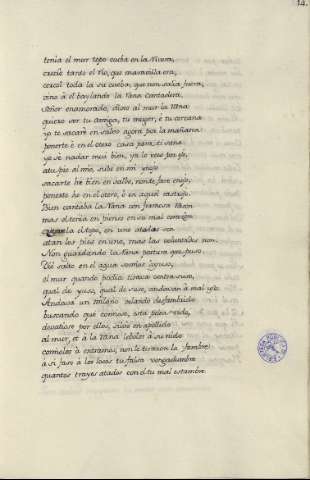 14.
tenia el mur topo cueba en la rivera,
crecie tanto el rio, que maravilla era,
cercó toda la su cueba, que non salia fuera,
vino á el baylando la Rana cantadera.
Señor enamorado, dixo al mur la Rana
quiero ser tu amiga, tu muger, é tu cercana
yo te sacaré en salvo agora por la mañana
ponerte é en el otero cosa para ti sana
yo se nadar muy bien, ya lo vees por ojo,
ata tu pie al mio, sube en mi
sacarte hé bien en salvo, non te faré enojo,
ponerte he en el otero, ó en aquel rastrojo.
Bien cantaba la Rana con fermosa rason
mas al tenia en pienso en su mal corazon
creyosela el topo, en uno atados son
atan los pies en uno, mas las voluntades non.
Non guardando la Rana postura que puso
Dió salto en el agua somese ayuso,
el mur quanto podia tiraba contra suso,
qual de yuso, qual de suso, andavan á mal uso.
Andava un milano volando desfambrido
buscando que comiese, esta pelea vido,
devatiose por ellos, silvó en apellido
al mur, et á la rana lebolos á su nido
comiolos á entramos, non le tiraron la fambre
asi fase á los locos tu falsa vergadumbre
quantos trayes atados con el tu mal estambre.